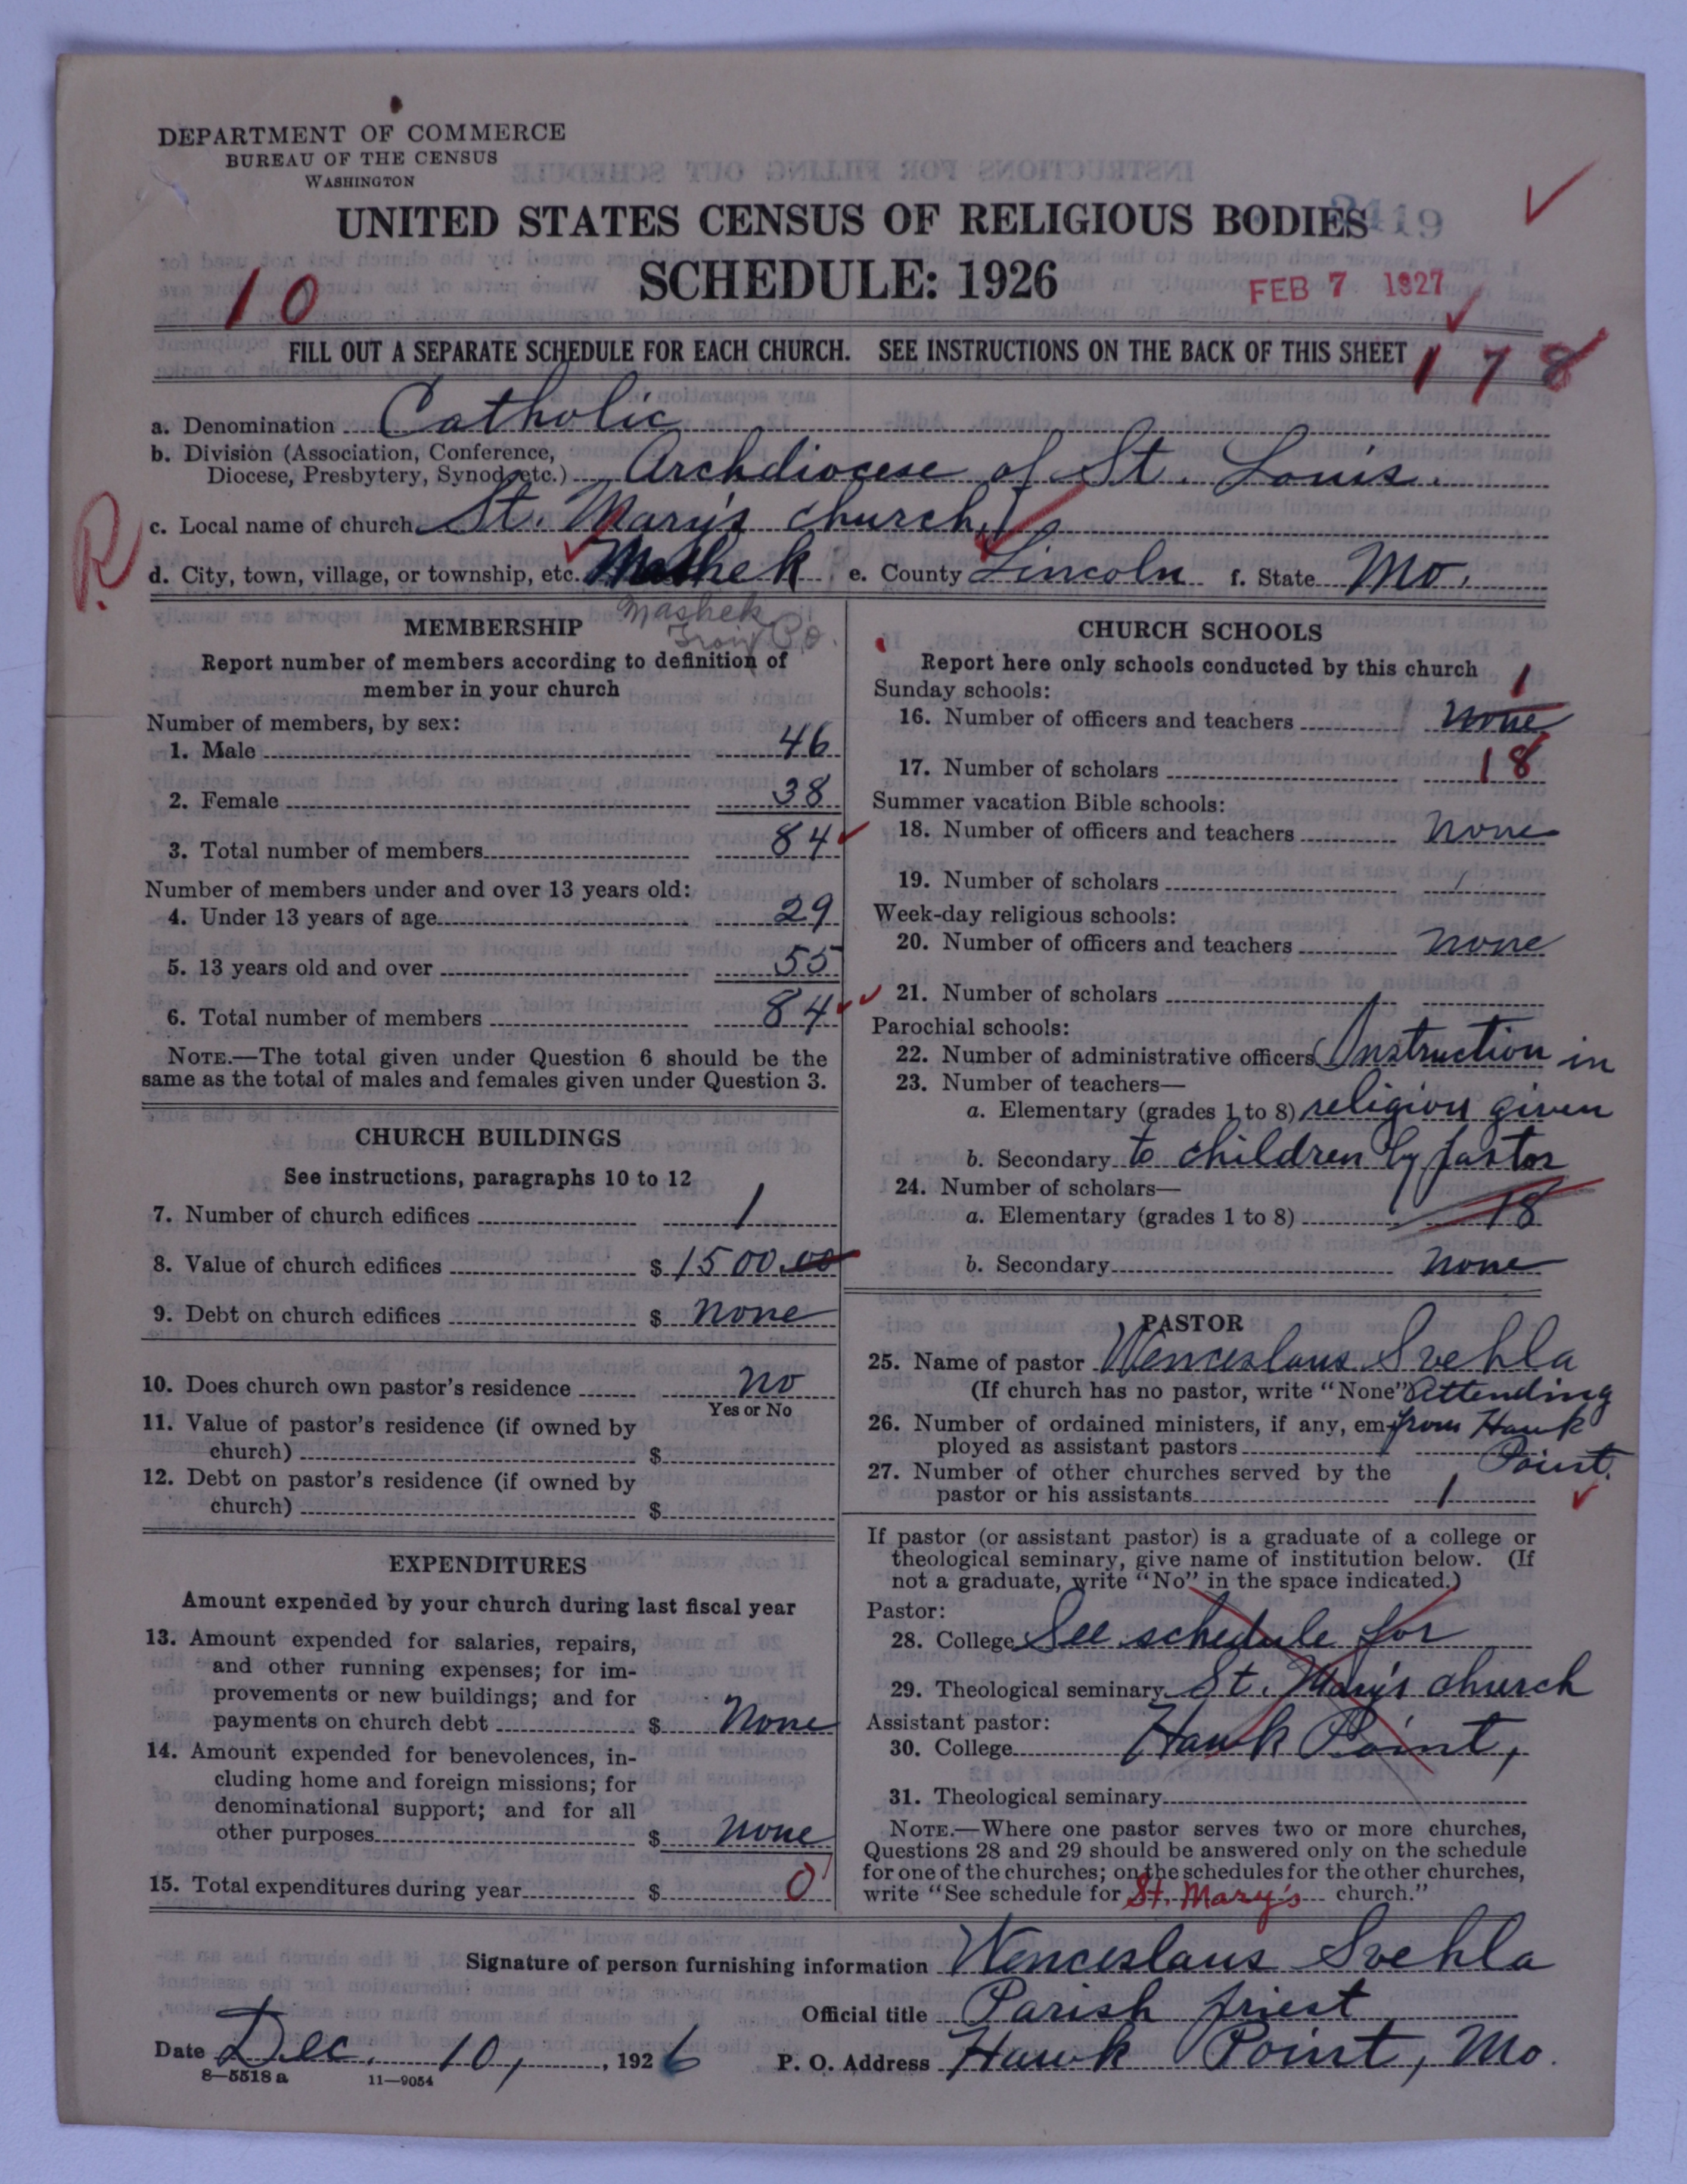 DEPARTMENT OF COMMERCE
BUREAU OF THE CENSUS
WASHINGTON
UNITED STATES CENSUS OF RELIGIOUS BODIES
SCHEDULE: 1926
10
FEB 7 1927
FILL OUT A SEPARATE SCHEDULE FOR EACH CHURCH. SEE INSTRUCTIONS ON THE BACK OF THIS SHEET
178
a. Denomination Catholic
b. Division (Association, Conference, Diocese, Presbytery, Synod, etc.) Archdiocese of St. Louis.
c. Local name of church St. Mary's church,
R.
d. City, town, village, or township, etc. Mashek e. County Lincoln f. State Mo.
Mashek
Troy P.O.
MEMBERSHIP
Report number of members according to definition of
member in your church
Number of members, by sex:
1. Male 46
2. Female 38
3. Total number of members 84
Number of members under and over 13 years old:
4. Under 13 years of age 29
5. 13 years old and over 55
6. Total number of members 84
NOTE.—The total given under Question 6 should be the
same as the total of males and females given under Question 3.
CHURCH BUILDINGS
See instructions, paragraphs 10 to 12
7. Number of church edifices 1
8. Value of church edifices $ 1500.00
9. Debt on church edifices $ none
10. Does church own pastor's residence no
Yes or No
11. Value of pastor's residence (if owned by
church) $
12. Debt on pastor's residence (if owned by
church) $
EXPENDITURES
Amount expended by your church during last fiscal year
13. Amount expended for salaries, repairs,
and other running expenses; for im-
provements or new buildings; and for
payments on church debt $ none
14. Amount expended for benevolences, in-
cluding home and foreign missions; for
denominational support; and for all
other purposes $ none
15. Total expenditures during year $ 0
CHURCH SCHOOLS
Report here only schools conducted by this church
Sunday schools: 1
16. Number of officers and teachers none
17. Number of scholars 18
Summer vacation Bible schools:
18. Number of officers and teachers none
19. Number of scholars
Week-day religious schools:
20. Number of officers and teachers none
21. Number of scholars
Parochial schools:
22. Number of administrative officers Instruction in
23. Number of teachers—
a. Elementary (grades 1 to 8) religion given
b. Secondary to children by pastor
24. Number of scholars—
a. Elementary (grades 1 to 8) 18
b. Secondary none
PASTOR
25. Name of pastor Wenceslaus Svehla
(If church has no pastor, write "None") Attending
26. Number of ordained ministers, if any, em- from Hawk
ployed as assistant pastors Point.
27. Number of other churches served by the
pastor or his assistants 1
If pastor (or assistant pastor) is a graduate of a college or
theological seminary, give name of institution below. (If
not a graduate, write "No" in the space indicated.)
Pastor:
28. College See schedule for
29. Theological seminary St. Mary's church
Assistant pastor:
30. College Hawk Point,
31. Theological seminary
NOTE.—Where one pastor serves two or more churches,
Questions 28 and 29 should be answered only on the schedule
for one of the churches; on the schedules for the other churches,
write "See schedule for St. Mary's church."
Signature of person furnishing information Wenceslaus Svehla
Official title Parish priest
Date Dec. 10, , 1926 P. O. Address Hawk Point, Mo.
8—5518a 11—9054